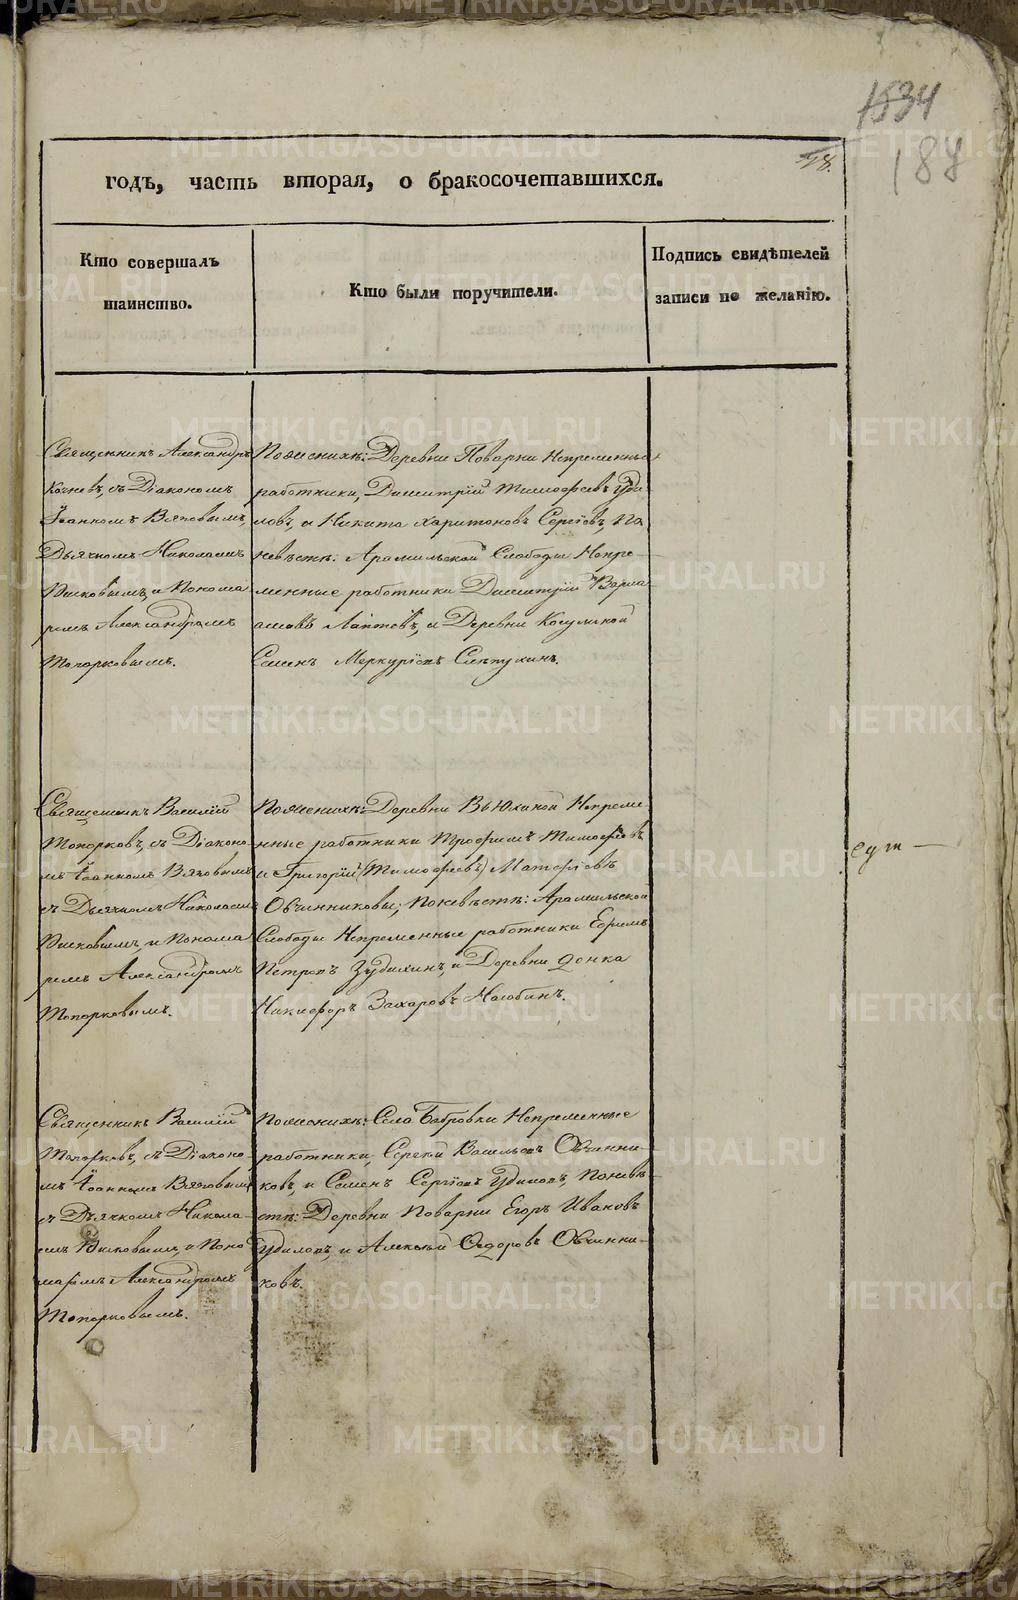 1534
188
28.
годъ, часть вторая, о бракосочетавшихся.
Кто совершалъ
таинство.
Кто были поручители.
Подпись свидѣтелей
записи по желанію.
Священникъ Александръ
Кочневъ, съ Діакономъ
Іоанномъ Вяткинымъ,
Дьячкомъ Николаемъ
и Понома
ремъ Александромъ
Топорковымъ.
Пожених: Деревни Поварни Непременные
работники, Димитрій Тимофеевъ Уди
ловъ, и Никита Харитоновъ Сергіевъ, По
невѣсте: Арамильской Слободы Непре
менные работники Димитрій Варла
амовъ Лаптевъ, и Деревни Косулиной
Семенъ Меркурьевъ Слепухинъ.
Священникъ Василій
Топорковъ, съ Діаконо
мъ Іоанномъ
съ Дьячкомъ Николаемъ
и Понома
ремъ Александромъ
Топорковымъ.
Пожених: Деревни Вьюхиной Непреме
нные работники Трофимъ Тимофеевъ
и Григорій (Тимофеевъ) Матфіевъ
Овчинниковы; Поневѣсте: Арамильской
Слободы Непременные работники Ефремъ
Петровъ Зудихинъ, и Деревни Фомка
Никифоръ Захаровъ
сут —
Священникъ Василій
Топорковъ, съ Діаконо
мъ Іоанномъ
съ Дьячкомъ Никола
емъ и Поно
маремъ Александромъ
Топорковымъ.
Пожених: Села Бобровки Непременные
работники, Сергей Васильевъ Овчинни
ковъ, и Семенъ Сергіевъ Удиловъ, Поневѣ
сте: Деревни Поварни Егоръ Ивановъ
Удиловъ, и Алексей Федоровъ Овчинни
ковъ.
METRIKI.GASO-URAL.RU